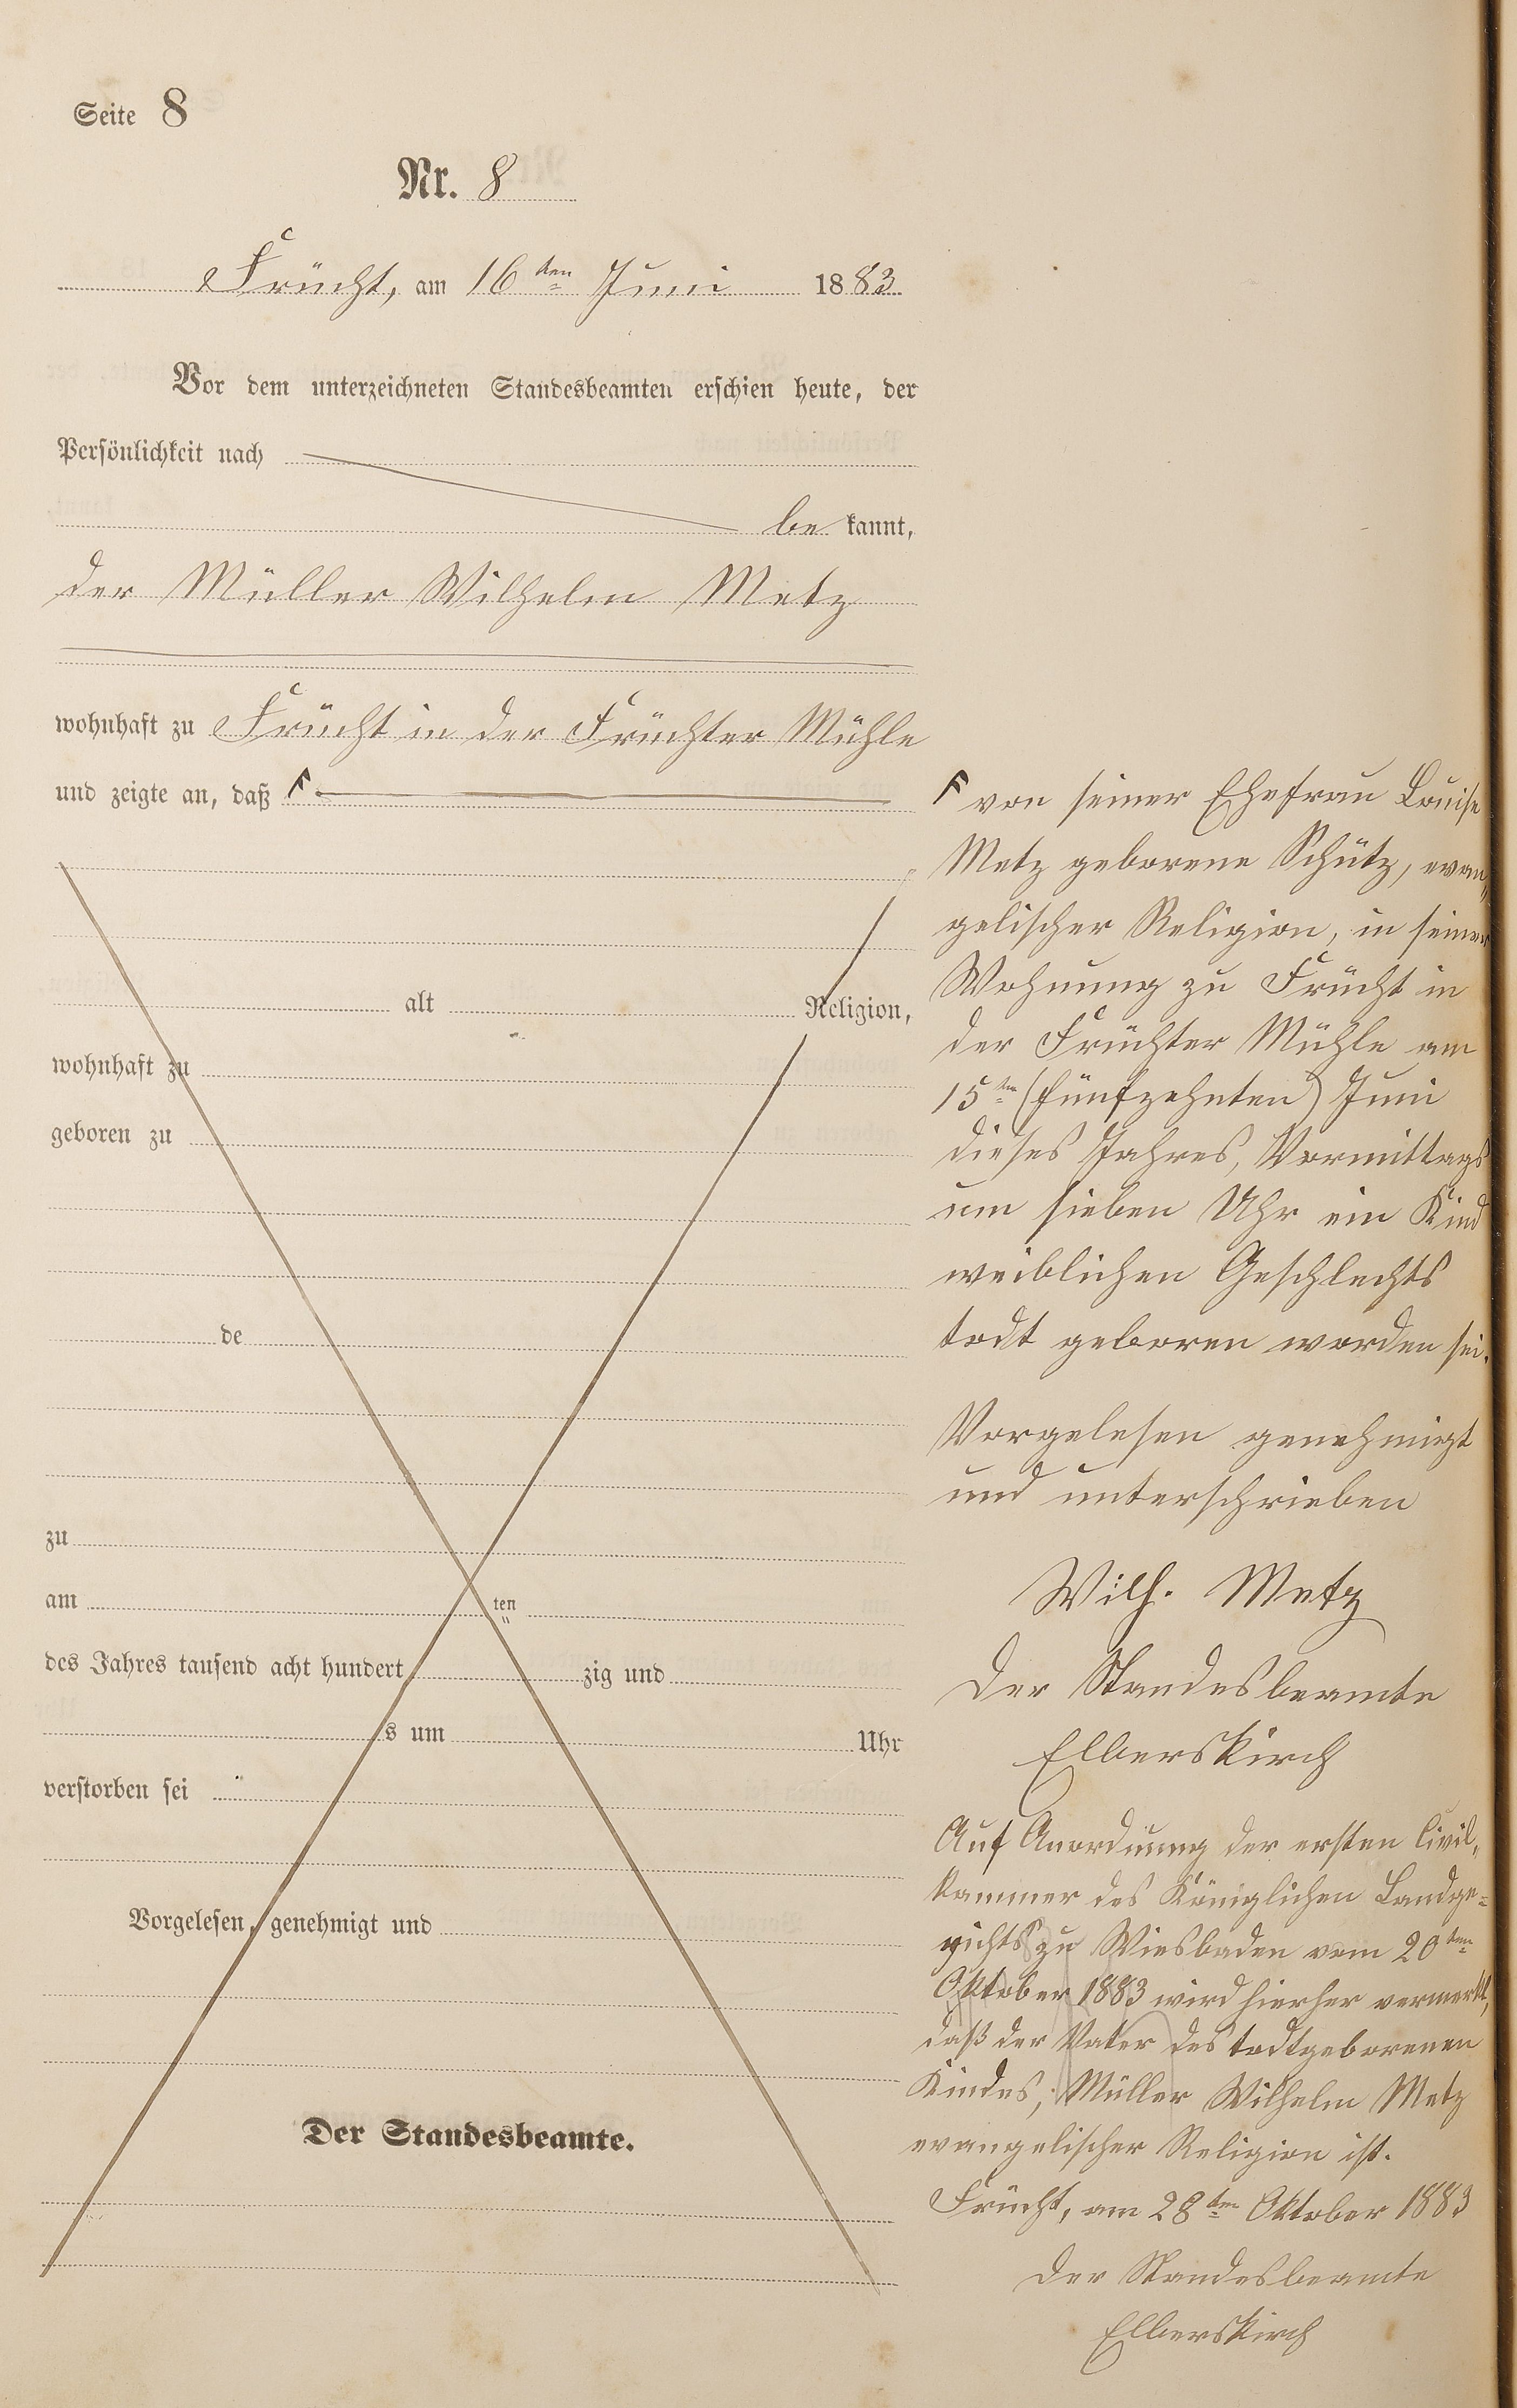 Seite 8
Nr. 8
Frücht, am 16ten Juni 1883
Vor dem unterzeichneten Standesbeamten erschien heute, der
Persönlichkeit nach
be kannt,
der Müller Wilhelm Metz
wohnhaft zu Frücht in der Früchter Mühle
und zeigte an, daß
alt Religion,
wohnhaft zu
geboren zu
de
zu
am ten
des Jahres tausend acht hundert zig und
s um Uhr
verstorben sei
Vorgelesen, genehmigt und
Der Standesbeamte.
von seiner Ehefrau Louise
Metz geborene Schütz, evan„
gelischer Religion, in seiner
Wohnung zu Frücht in
der Früchter Mühle am
15ten (fünfzehnten) Juni
dieses Jahres, Vormittags
um sieben Uhr ein Kind
weiblichen Geschlechts
todt geboren worden sei.
Vorgelesen genehmigt
und unterschrieben
Wilh. Metz
Der Standesbeamte
Elberskirch
Auf Anordnung der ersten Civil„
kammer des Königlichen Landge=
richts zu Wiesbaden vom 20ten
Oktober 1883 wird hierher vermerkt,
daß der Vater des todtgeborenen
Kindes, Müller Wilhelm Metz
evangelischer Religion ist.
Frücht, am 28ten Oktober 1883
Der Standesbeamte
Elberskirch